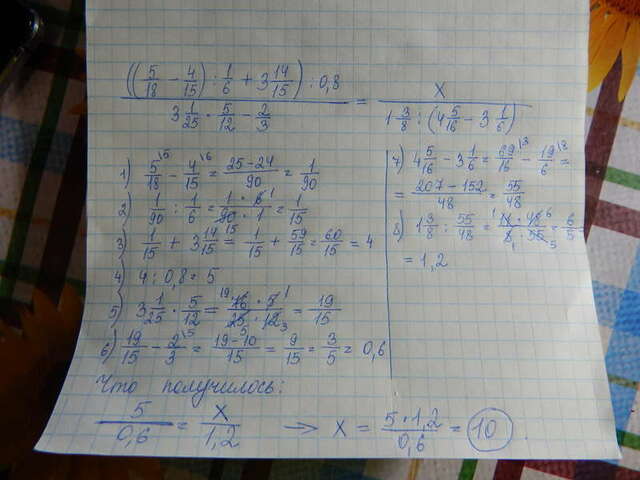 ((5/18 - 4/15) : 1/6 + 3 14/15) : 0,8 / 3 1/25 · 5/12 - 2/3 = x / 1 3/8 : (4 5/16 - 3 1/6)
1) 5/18 \5 - 4/15 \6 = 25-24/90 = 1/90
2) 1/90 : 1/6 = 1·6 1/90·1 15 = 1/15
3) 1/15 + 3 14/15 = 1/15 + 59/15 = 60/15 = 4
4) 4 : 0,8 = 5
5) 3 1/25 · 5/12 = 19 76 · 5 1/25 5 · 12 3 = 19/15
6) 19/15 - 2/3 \5 = 19-10/15 = 9/15 = 3/5 = 0,6
7) 4 5/16 - 3 1/6 = 69/16 \3 - 19/6 \8 =
= 207-152/48 = 55/48
8) 1 3/8 : 55/48 = 1 11 · 48 6/8 1 · 55 5 = 6/5 =
= 1,2
Что получилось:
5/0,6 = x/1,2 → x = 5·1,2/0,6 = 10.